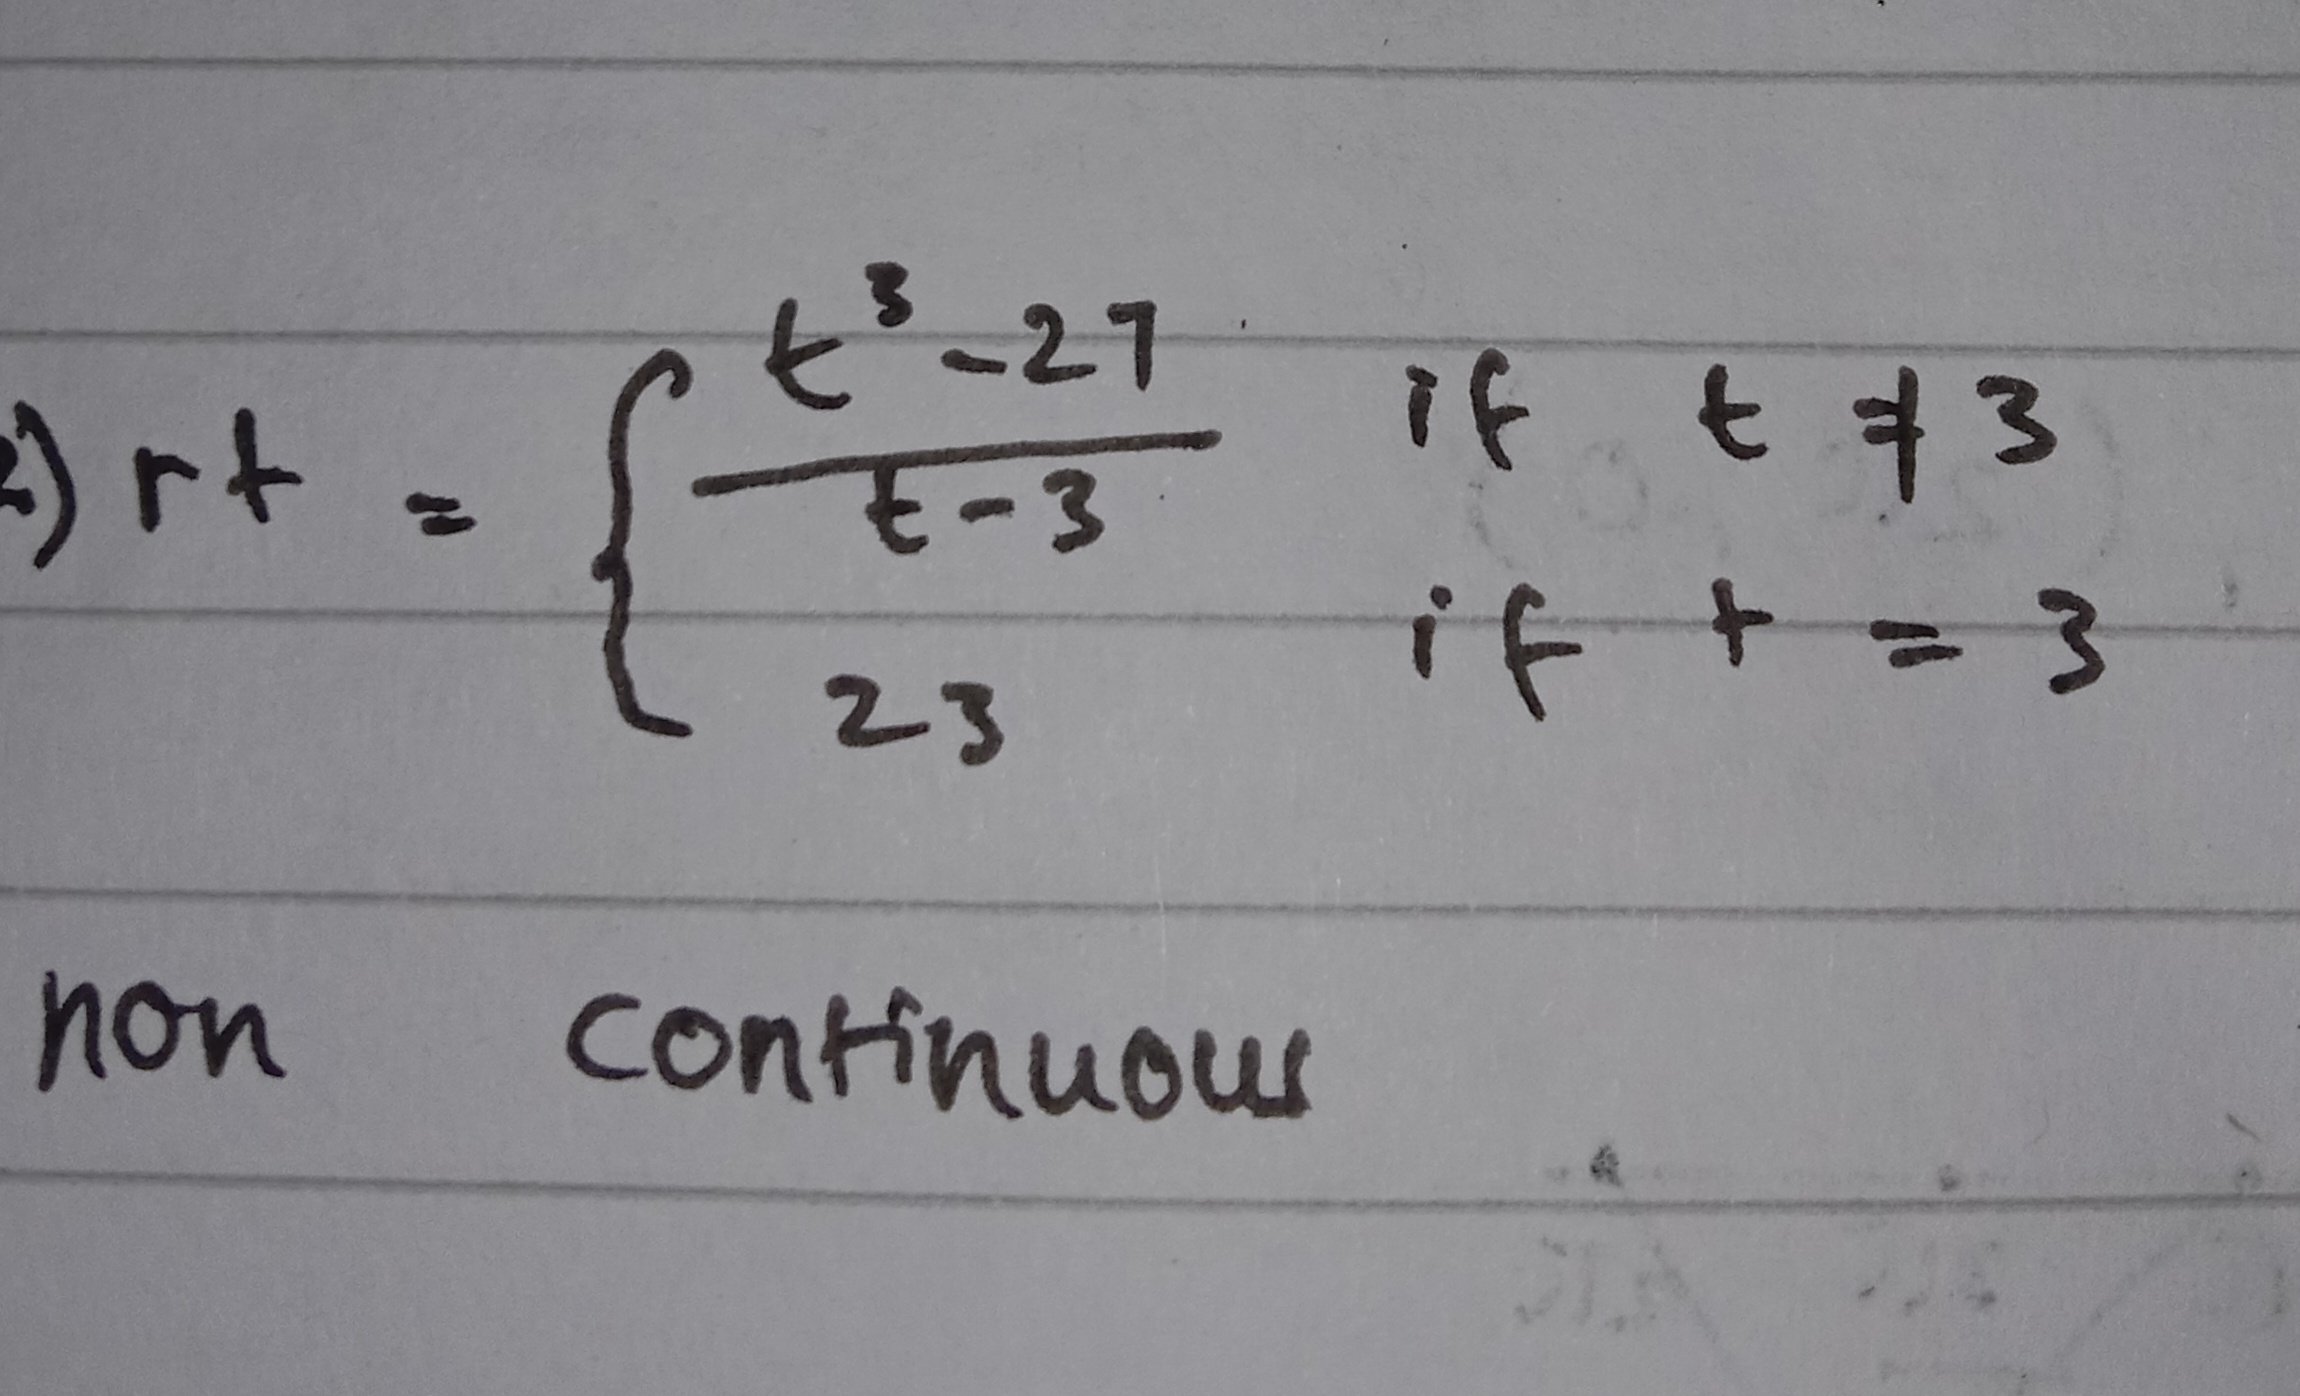 2) rt = { t³ - 27 / t - 3 if t ≠ 3
23 if t = 3
non continuous